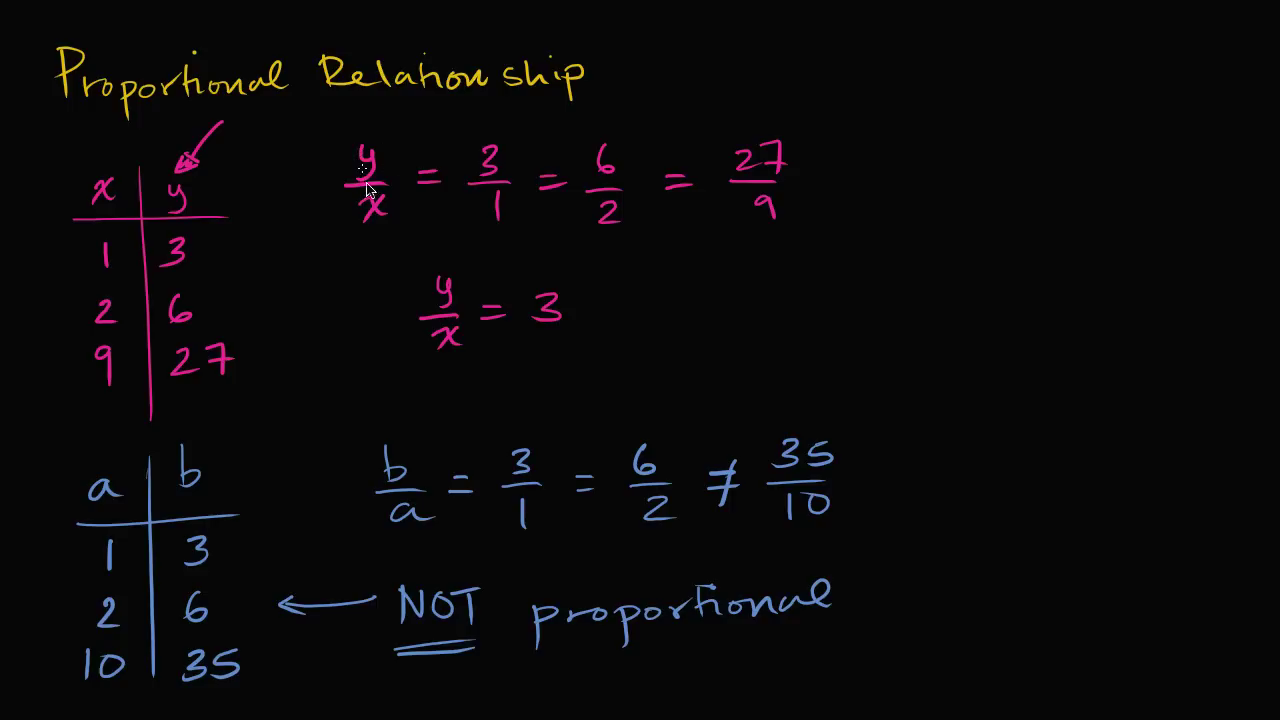 Proportional Relationship
x y
1 3
2 6
9 27
y/x = 3/1 = 6/2 = 27/9
y/x = 3
a b
1 3
2 6
10 35
b/a = 3/1 = 6/2 ≠ 35/10
← NOT proportional